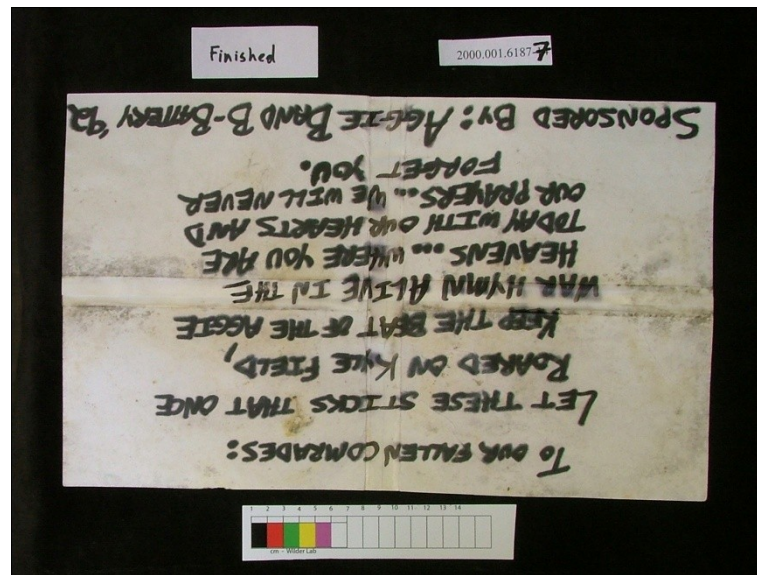 Finished
2000.001.6187-7
TO OUR FALLEN COMRADES:
LET THESE STICKS THAT ONCE
ROARED ON KYLE FIELD,
KEEP THE BEAT OF THE AGGIE
WAR HYMN ALIVE IN THE
HEAVENS... WHERE YOU ARE
TODAY WITH OUR HEARTS AND
OUR PRAYERS... WE WILL NEVER
FORGET YOU.
SPONSORED BY: AGGIE BAND B-BATTERY '92
1 2 3 4 5 6 7 8 9 10 11 12 13 14
cm - Wilder Lab